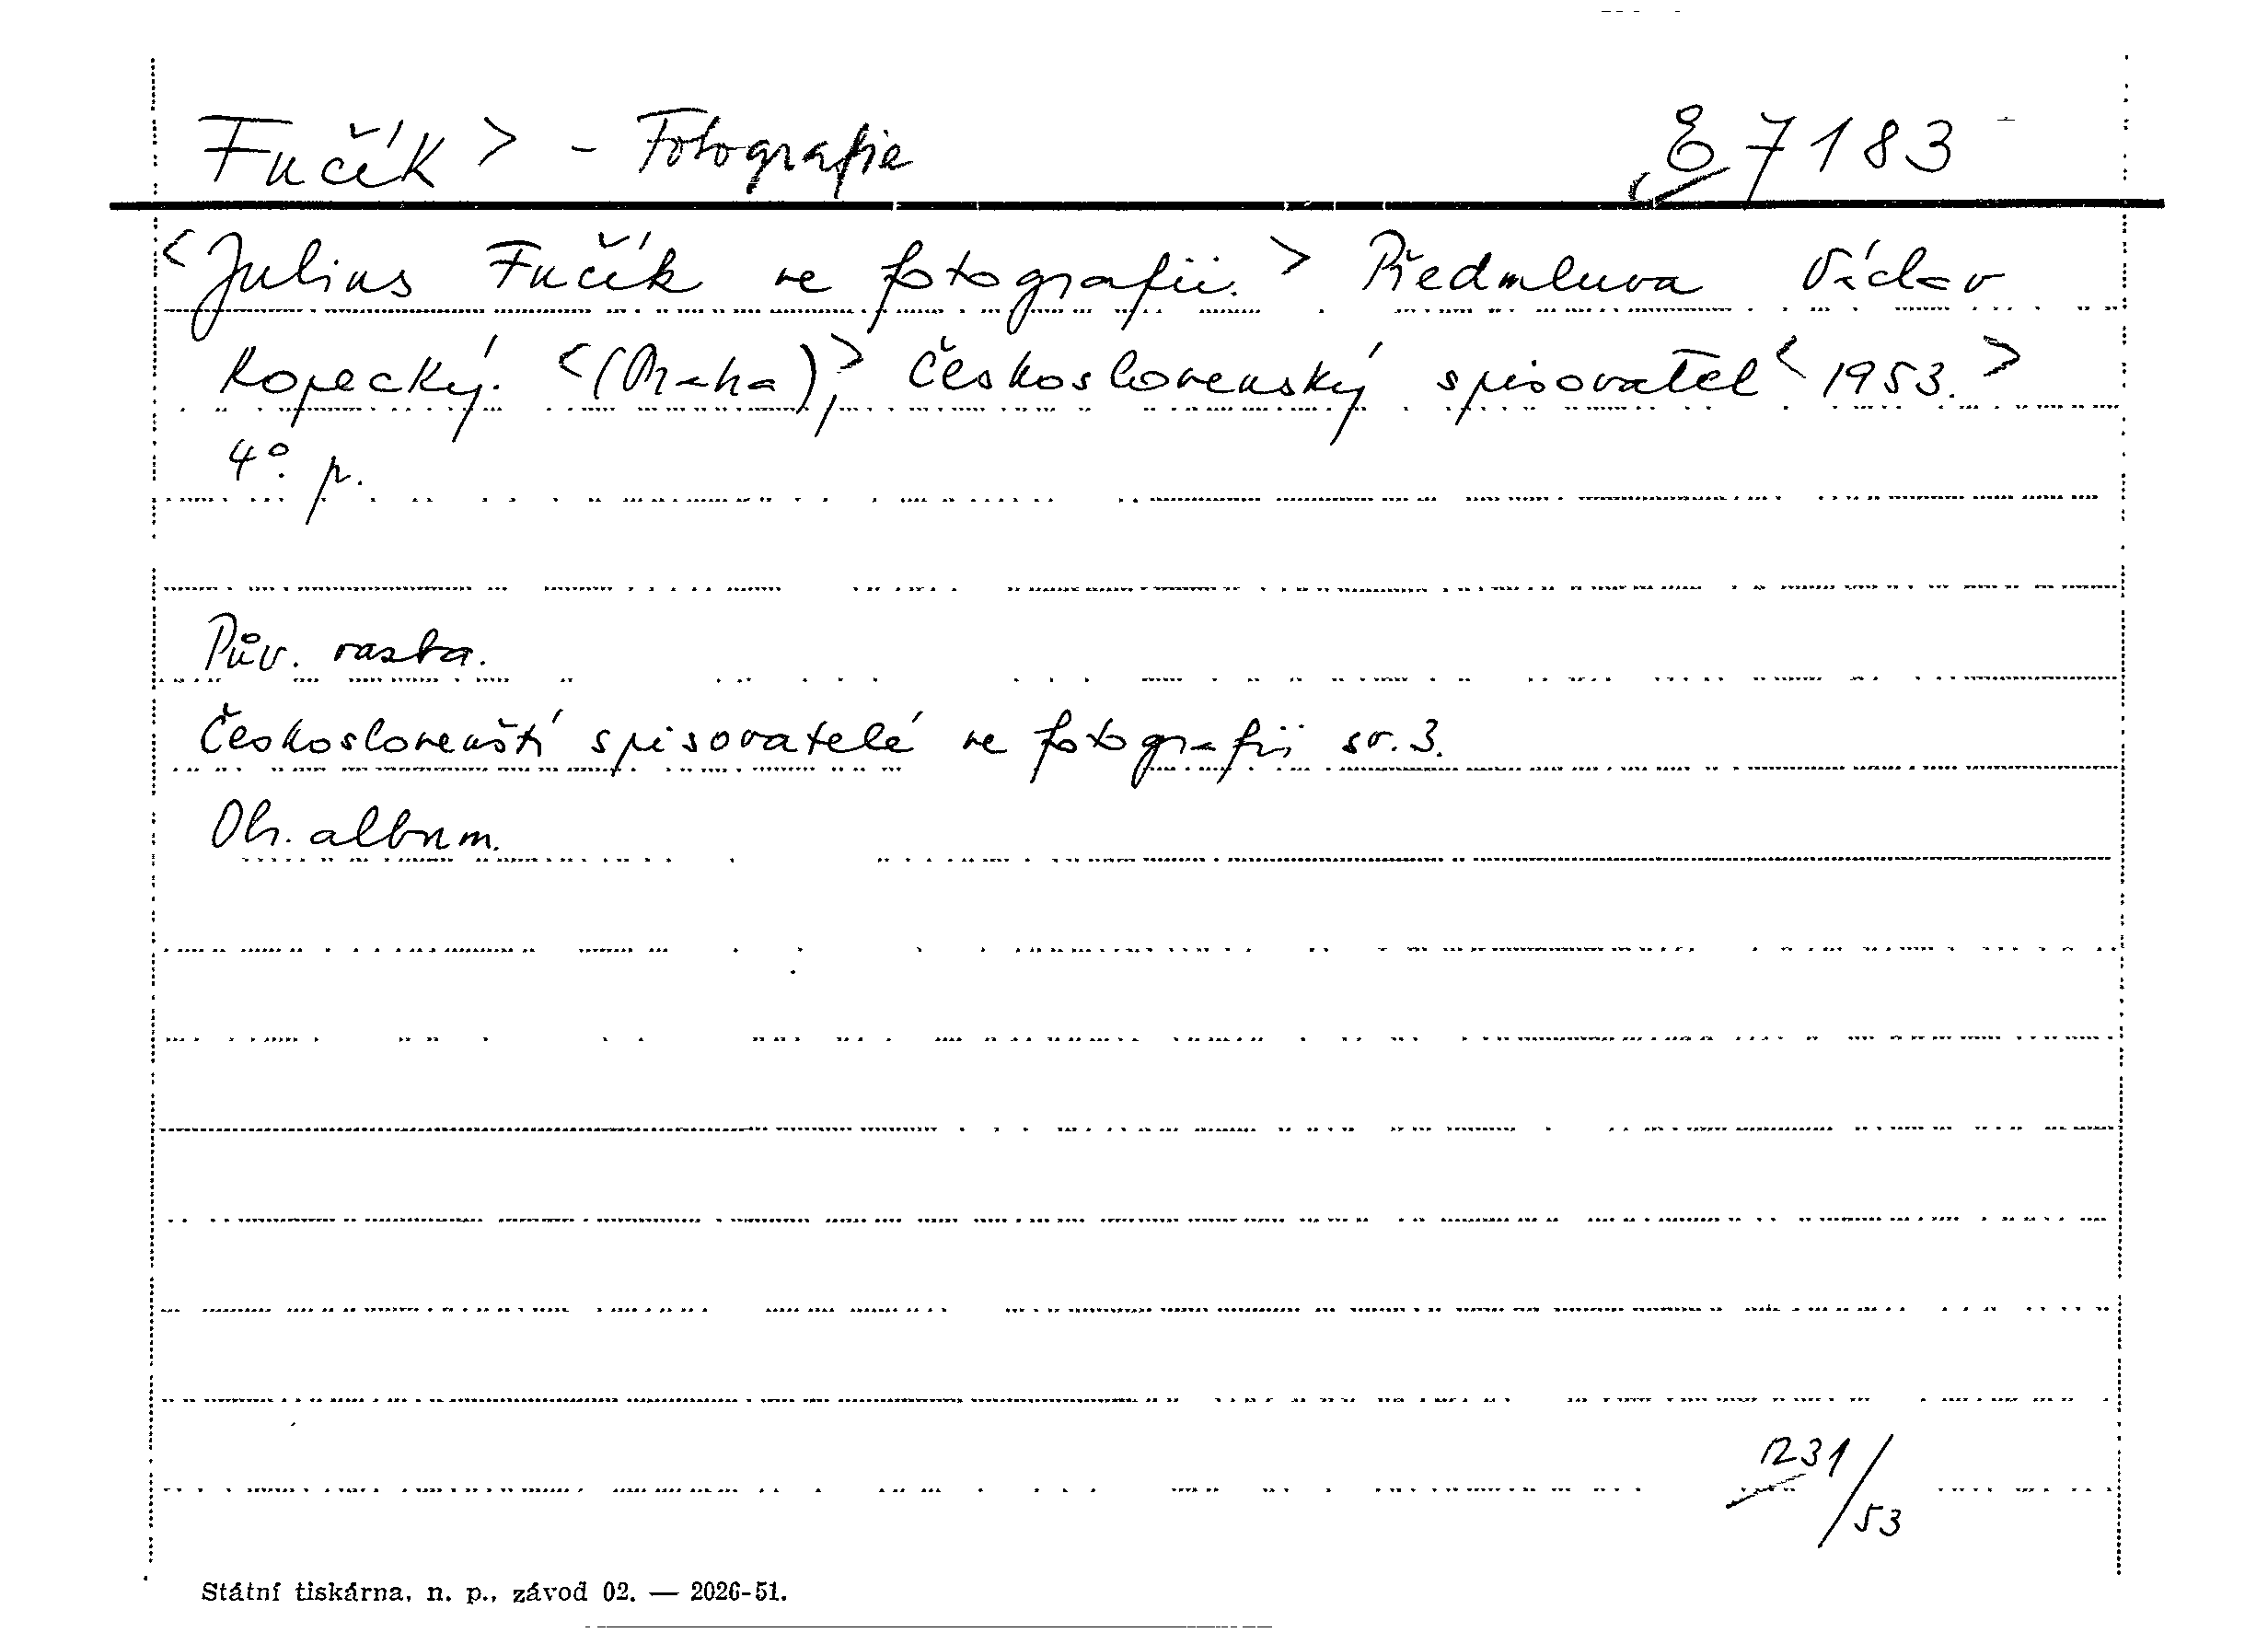 Fučík > - Fotografie E 7183
<Julius Fučík ve fotografii.> Předmluva Václav
Kopecký. <(Praha),> Československý spisovatel <1953.>
4°. p.
Pův. vazba.
Českoslovenští spisovatelé ve fotografii sv. 3.
Obr. album.
1231/53
Státní tiskárna, n. p., závod 02. — 2026-51.